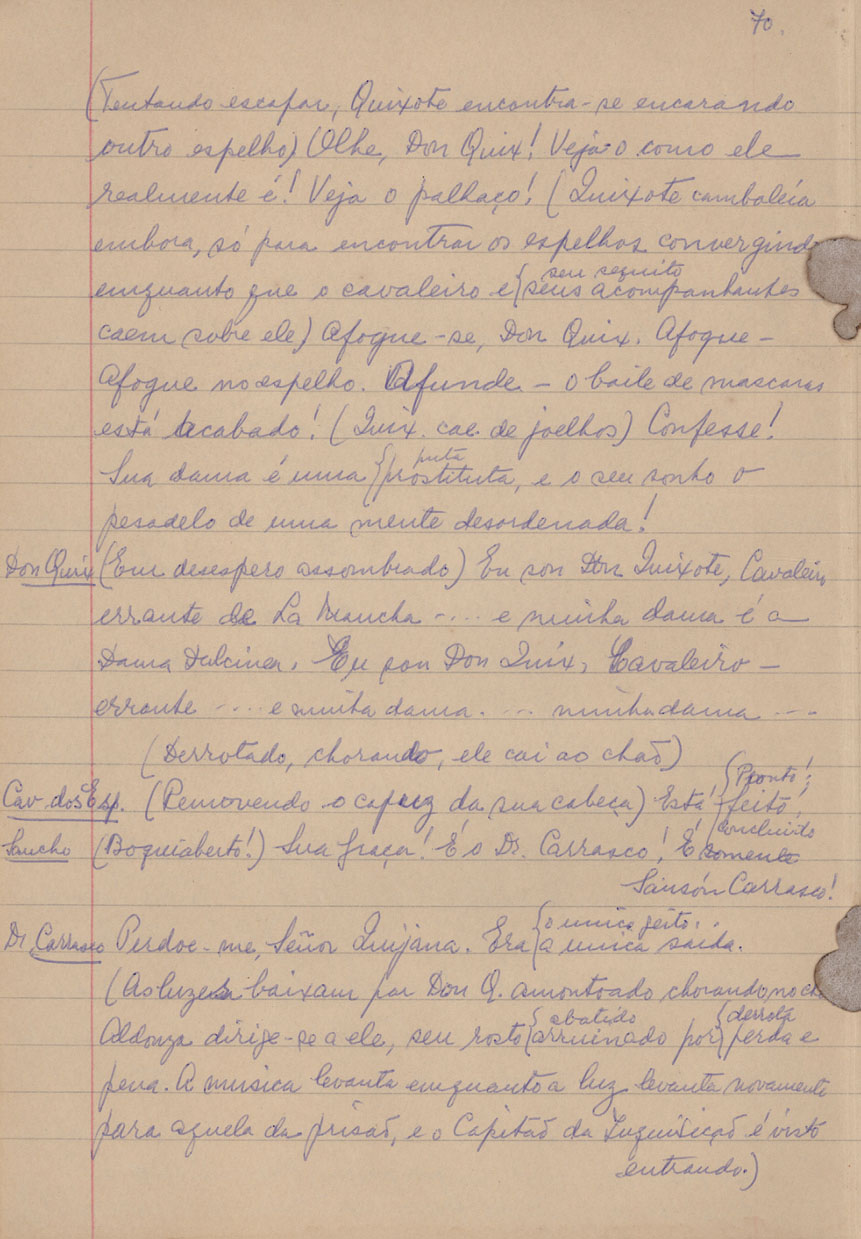 70.
(Tentando escapar, Quixote encontra-se encarando
outro espelho) (Olhe, Don Quix! Veja-o como ele
realmente é! Veja o palhaço! (Quixote cambaleia
embora, só para encontrar os espelhos convergindo
seu sequito
enquanto que o cavaleiro e {seus acompanhantes
caem sobre ele) Afogue-se, Don Quix. Afogue-
Afogue no espelho. Afunde - o baile de mascaras
está acabado! (Quix. cae de joelhos) Confesse!
puta
Sua dama é uma {prostituta, e o seu sonho o
pesadelo de uma mente desordenada!
Don Quix (Em desespero assombrado) Eu sou Don Quixote, Cavaleiro
errante de La Mancha -.... e minha dama é a
Dama Dulcinea. Eu sou Don Quix, Cavaleiro-
errante .... e minha dama .... minha dama ---
(Derrotado, chorando, ele cai ao chaõ)
{Pronto!
Cav. dos Esp. (Removendo o capuz da sua cabeça) Está {feito!
{concluido
Sancho (Boquiaberto!) Sua Graça! É o Dr. Carrasco! É somente
Sansón Carrasco!
{o unico jeito..
Dr. Carrasco Perdoe-me, Señor Quijana. Era {a unica saida.
(As luzes baixam por Don Q. amontoado chorando, no
{abatido {derrota
Aldonza dirige-se a ele, seu rosto {arruinado por {perda e
pena. A musica levanta enquanto a luz levanta novamente
para aquela da prisaõ, e o Capitaõ da Inquisiçaõ é visto
entrando.)